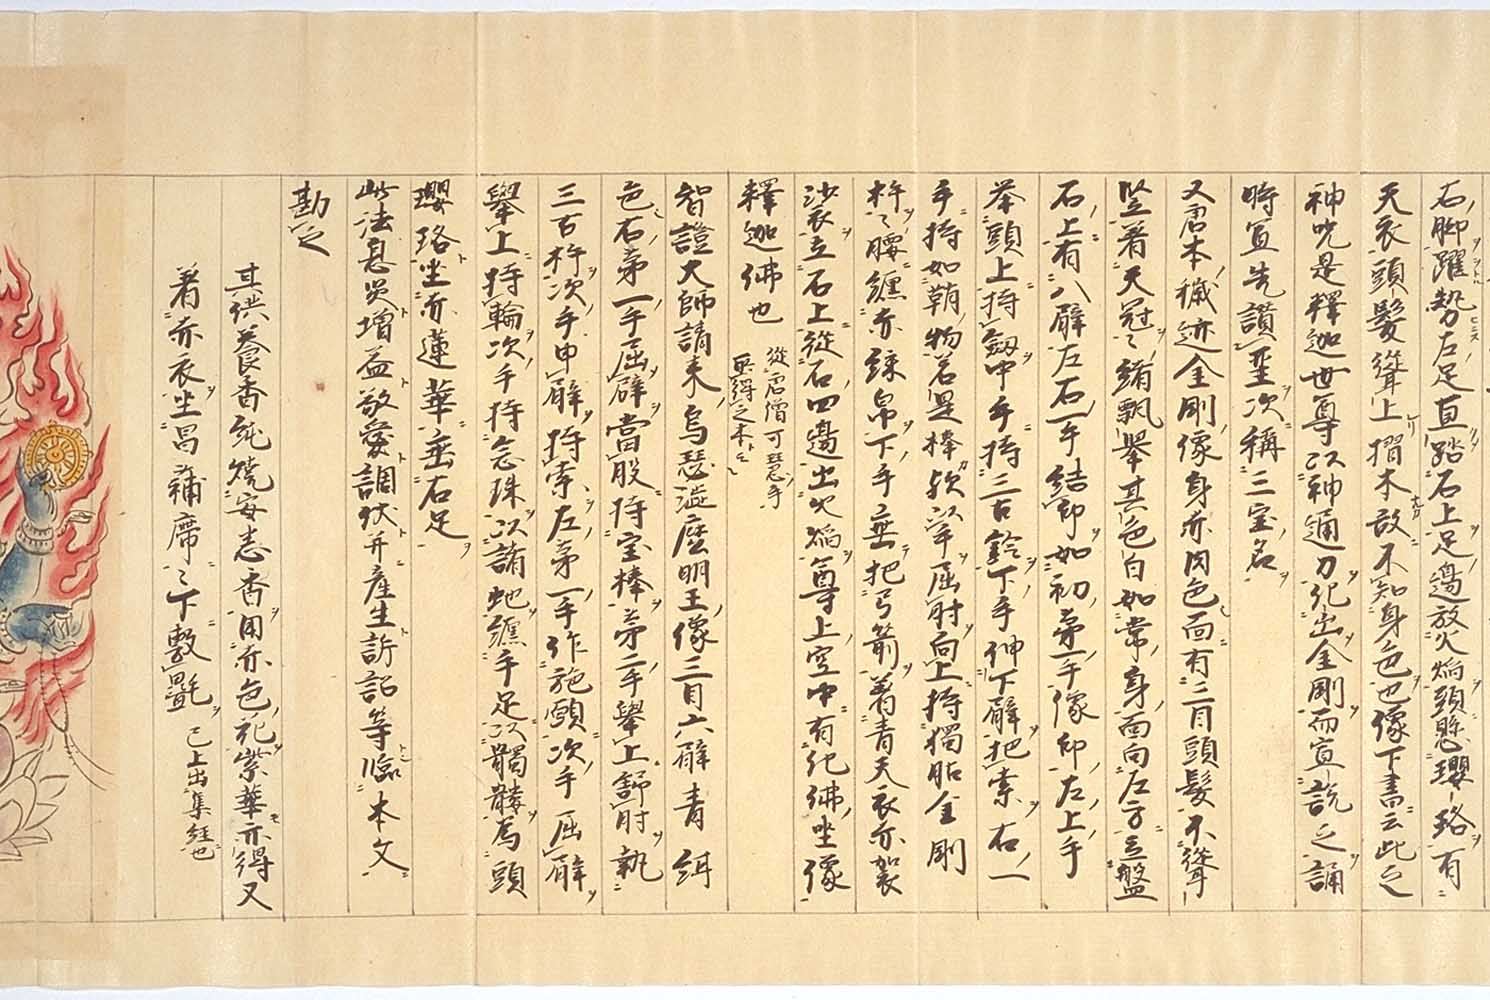 右脚躍勢左足直踏石上足邊放火焰頭懸瓔珞有
天衣頭髮聳上摺木故不知身色也像下書云此之
神咒是釋迦世尊以神通力化出金剛而宣說之誦
時宜先讚聖次稱三宝名
又唐本穢迹金剛像身赤肉色面有三目頭髮不聳
竪著天冠〻緒飄舉其色白如常身面向左方立盤
石上有八臂左右一手結印如初第一手像印左上手
举頭上持劔中手持三古鈴下手伸下臂把索右一
手持如鞘物若是棒欤次䏻屈肘向上持獨股金剛
杵〻腰纏赤練帛下手垂把弓箭著青天衣赤袈
裟衣立石上從石四邊出火焰尊上空中有化佛坐像
釋迦佛也
從唐僧可慧手
畢得之本云〻
智證大師請来烏瑟澁麽明王像三目六臂青緋
色右第一手屈臂當股持宝棒第二手舉上舒肘執
三古杵次手申臂持索左第一手作施願次手屈臂
舉上持輪次手持念珠以諸虵纏手足以髑髏為頭
瓔珞坐赤蓮華垂右足
此法息災增益敬愛調伏并産生訴詔等臨本文
勘之
其供養香純燒安悉香用赤色花紫華亦得又
著赤衣坐昌蒲席〻下敷氍
已上出集経也